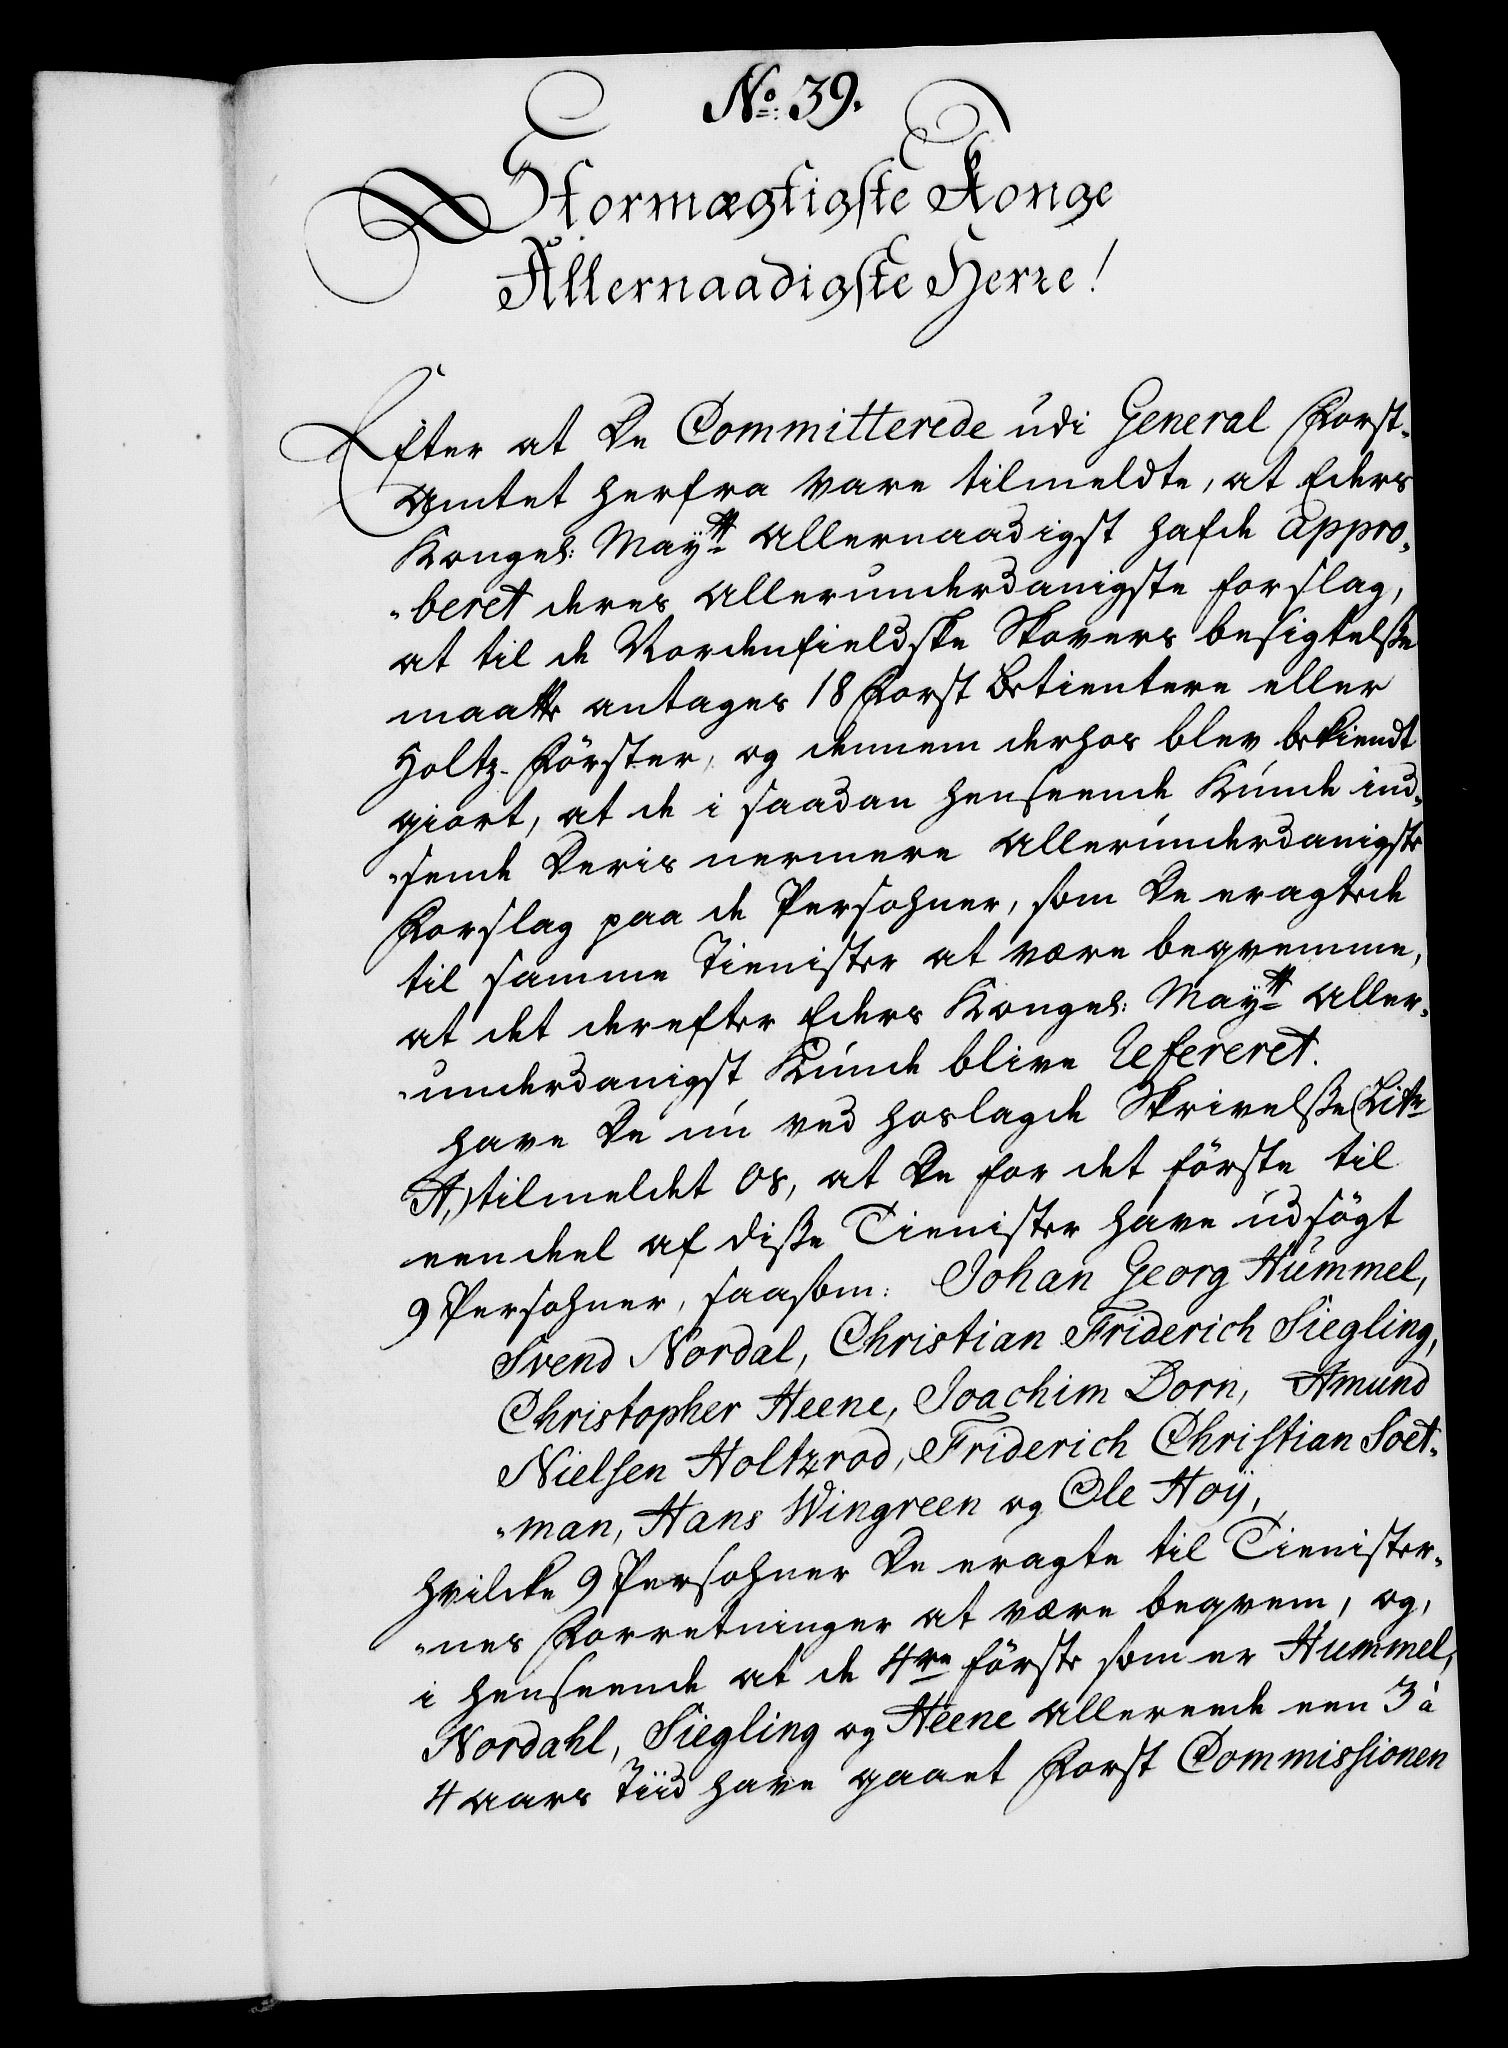 No: 39.
Stormægtigste Konge
Allernaadigste Herre!
Efter at De Committerede udi General Forst-
Amtet herfra vare tilmeldte, at Eders
Kongel: Maytt Allernaadigst hafde appro-
"beret deres Allerunderdanigste forslag,
at til de Nordenfieldske Skovers besigtelße
maatte antages 18 Forst Betientere eller
Holtz-Förster, og dennem derhos blev bekiendt
giort, at de i saadan henseende kunde ind-
"sende Deris nermere Allerunderdanigste
Forslag paa de Persohner, som De eragtede
til samme Tienister at være beqvemme,
at det derefter Eders Kongel: Maytt Aller-
"underdanigst kunde blive Refereret.
have De nu ved hoslagde Skrivelße (Litr
A,) tilmeldet os, at De for det förste til
een deel af diße Tienister have udsögt
9 Persohner, saasom: Johan Georg Hummel,
Svend Nordal, Christian Friderich Siegling,
Christopher Heene, Joachim Dorn, Amund
Nielsen Holtzrod, Friderich Christian Soet-
"man, Hans Wingreen og Ole Hoÿ,
hvilcke 9 Persohner De eragte til Tienister-
"nes Forretninger at være beqvem, og,
i henseende at de 4re förste som er Hummel,
Nordahl, Siegling og Heene allereede een 3 à
4 aars Tiid have gaaet Forst Commissionen